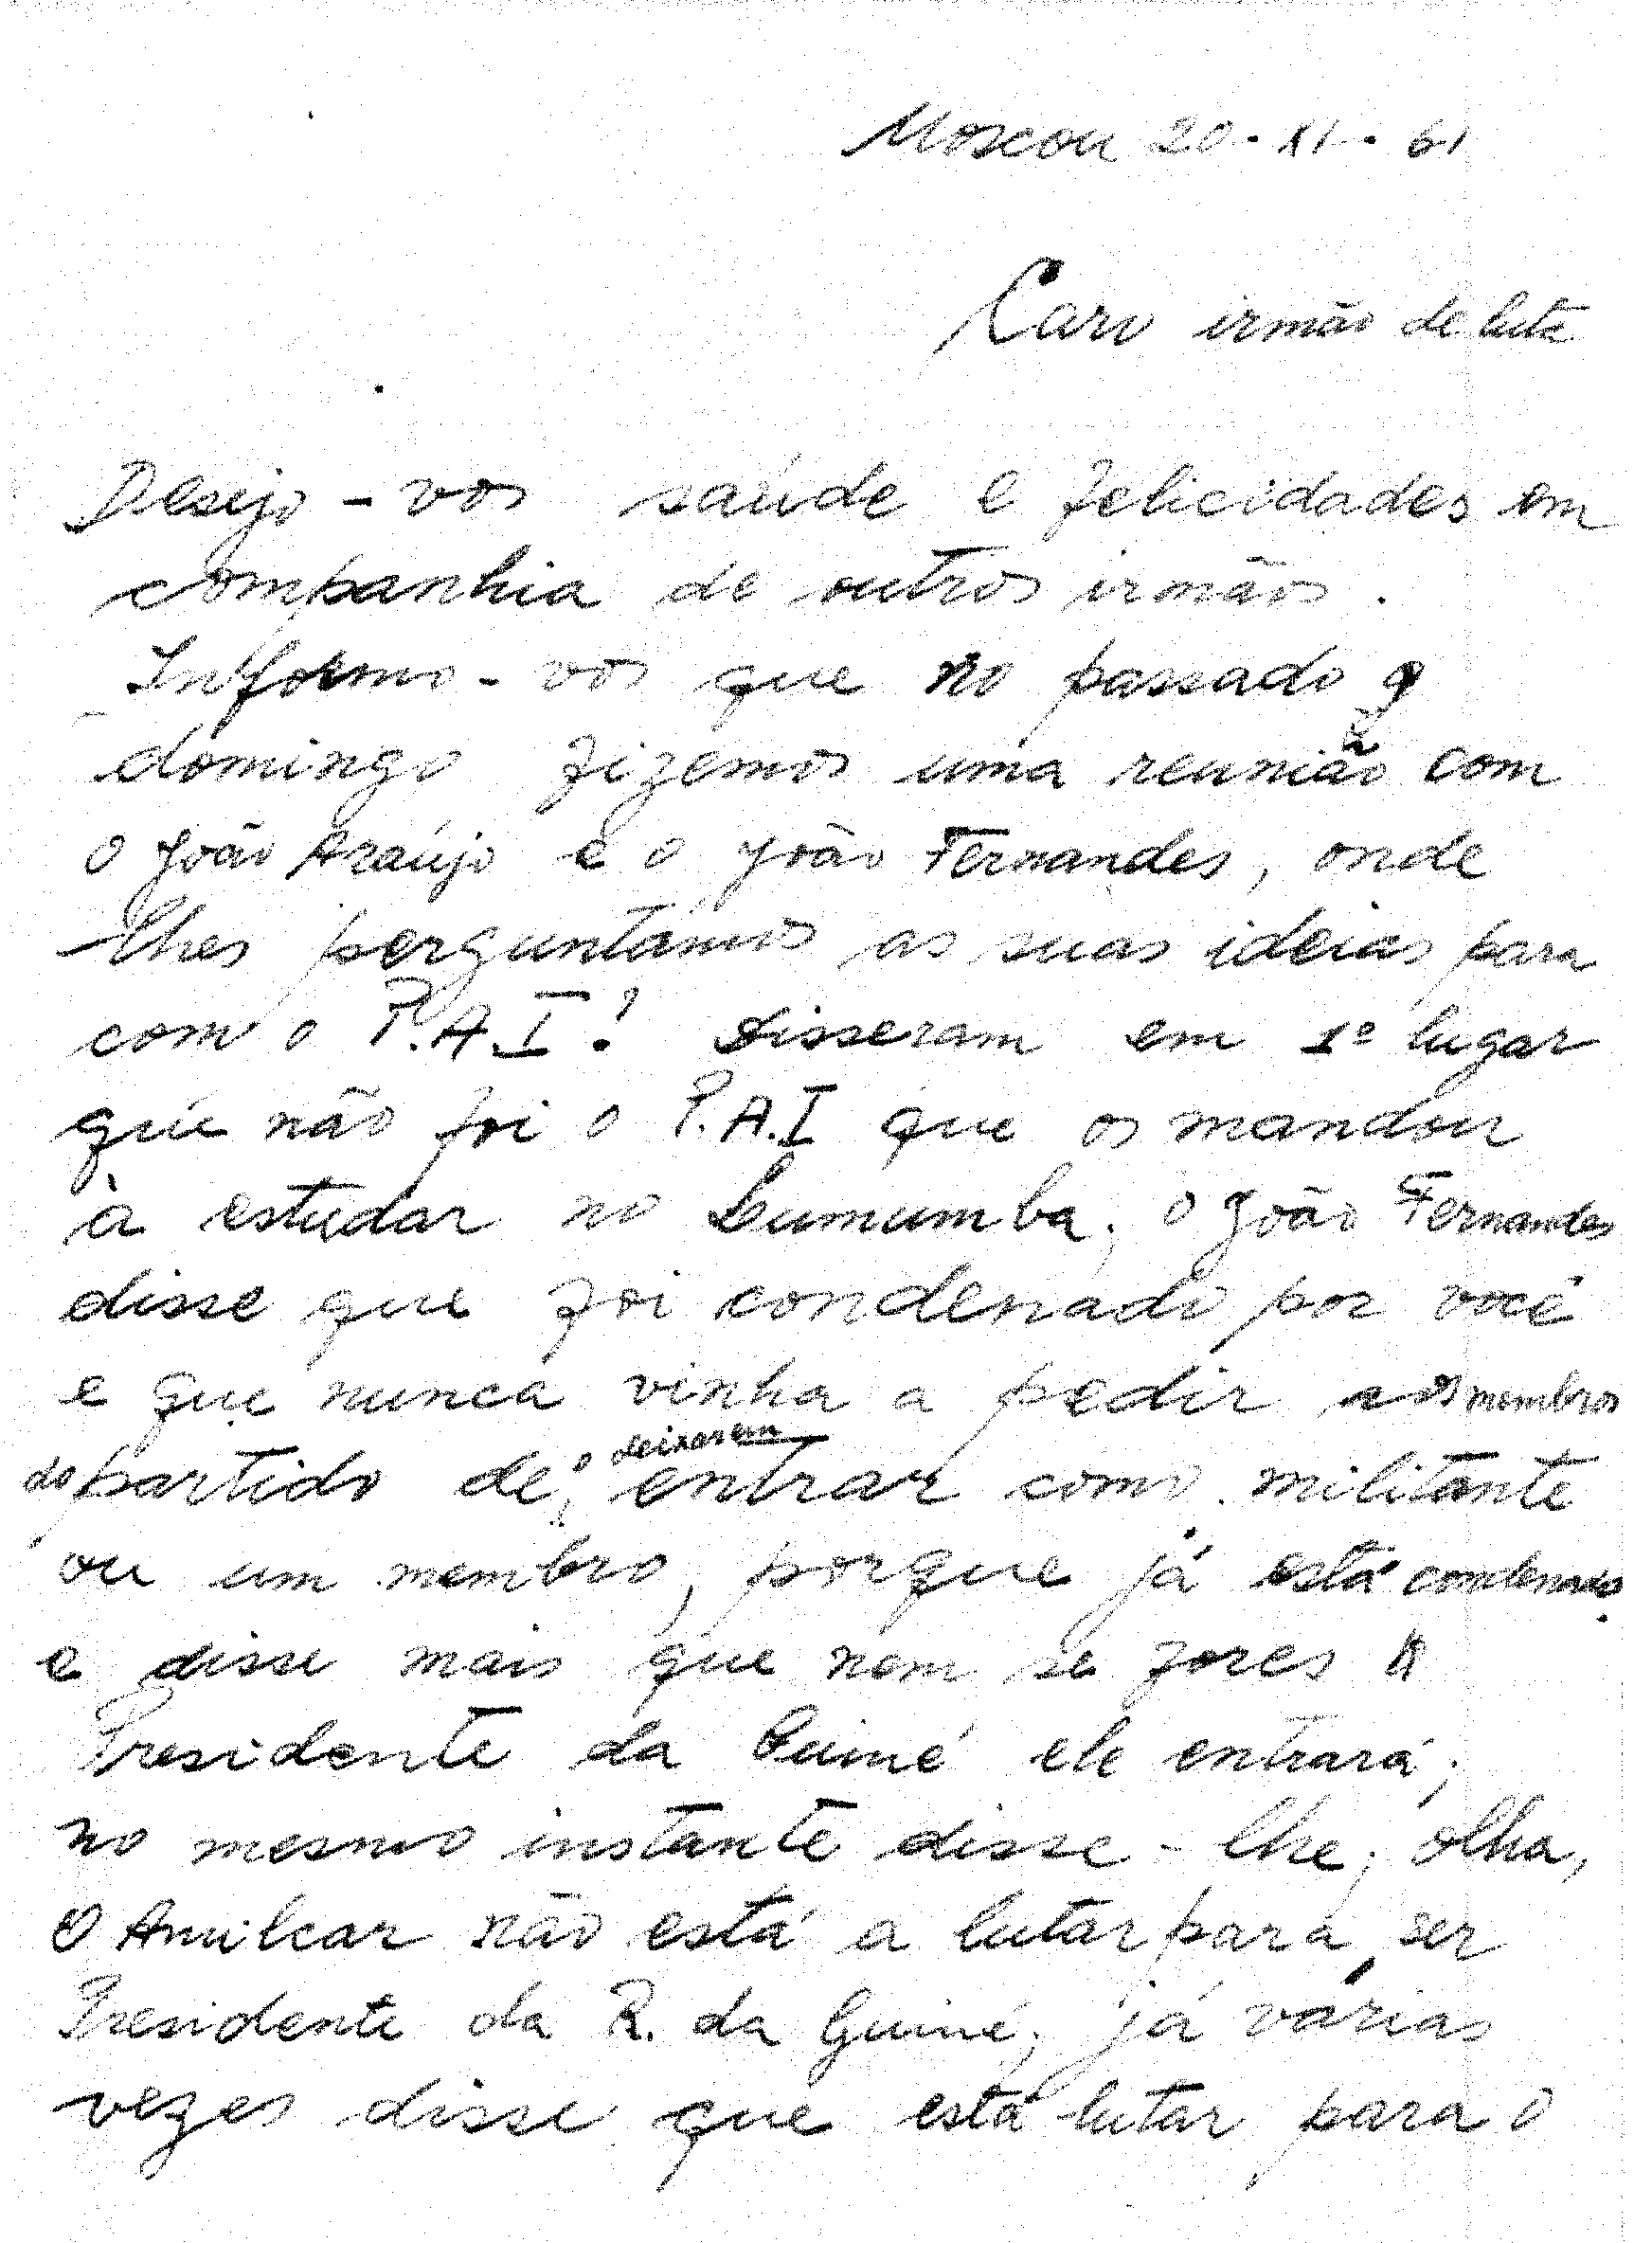 Moscou 20. XI. 61
Caro irmão de luta
Desejo-vos saúde e felicidades em
companhia de outros irmãos.
Informo-vos que no passado
domingo fizemos uma reunião com
o João Araújo e o João Fernandes, onde
lhes perguntámos as suas ideias para
com o P.A.I? Disseram em 1º lugar
que não foi o P.A.I que os mandou
à estudar no Lumumba; o João Fernandes
disse que foi condenado por você
e que nunca vinha a pedir aos membros
do partido de o deixarem entrar como militante
ou um membro, porque já está condenado
e disse mais que nem se fores
Presidente da Guiné ele entrará;
no mesmo instante disse-lhe; olha,
o Amilcar não está a lutar para ser
Presidente da R. da Guiné; já várias
vezes disse que está lutar para o